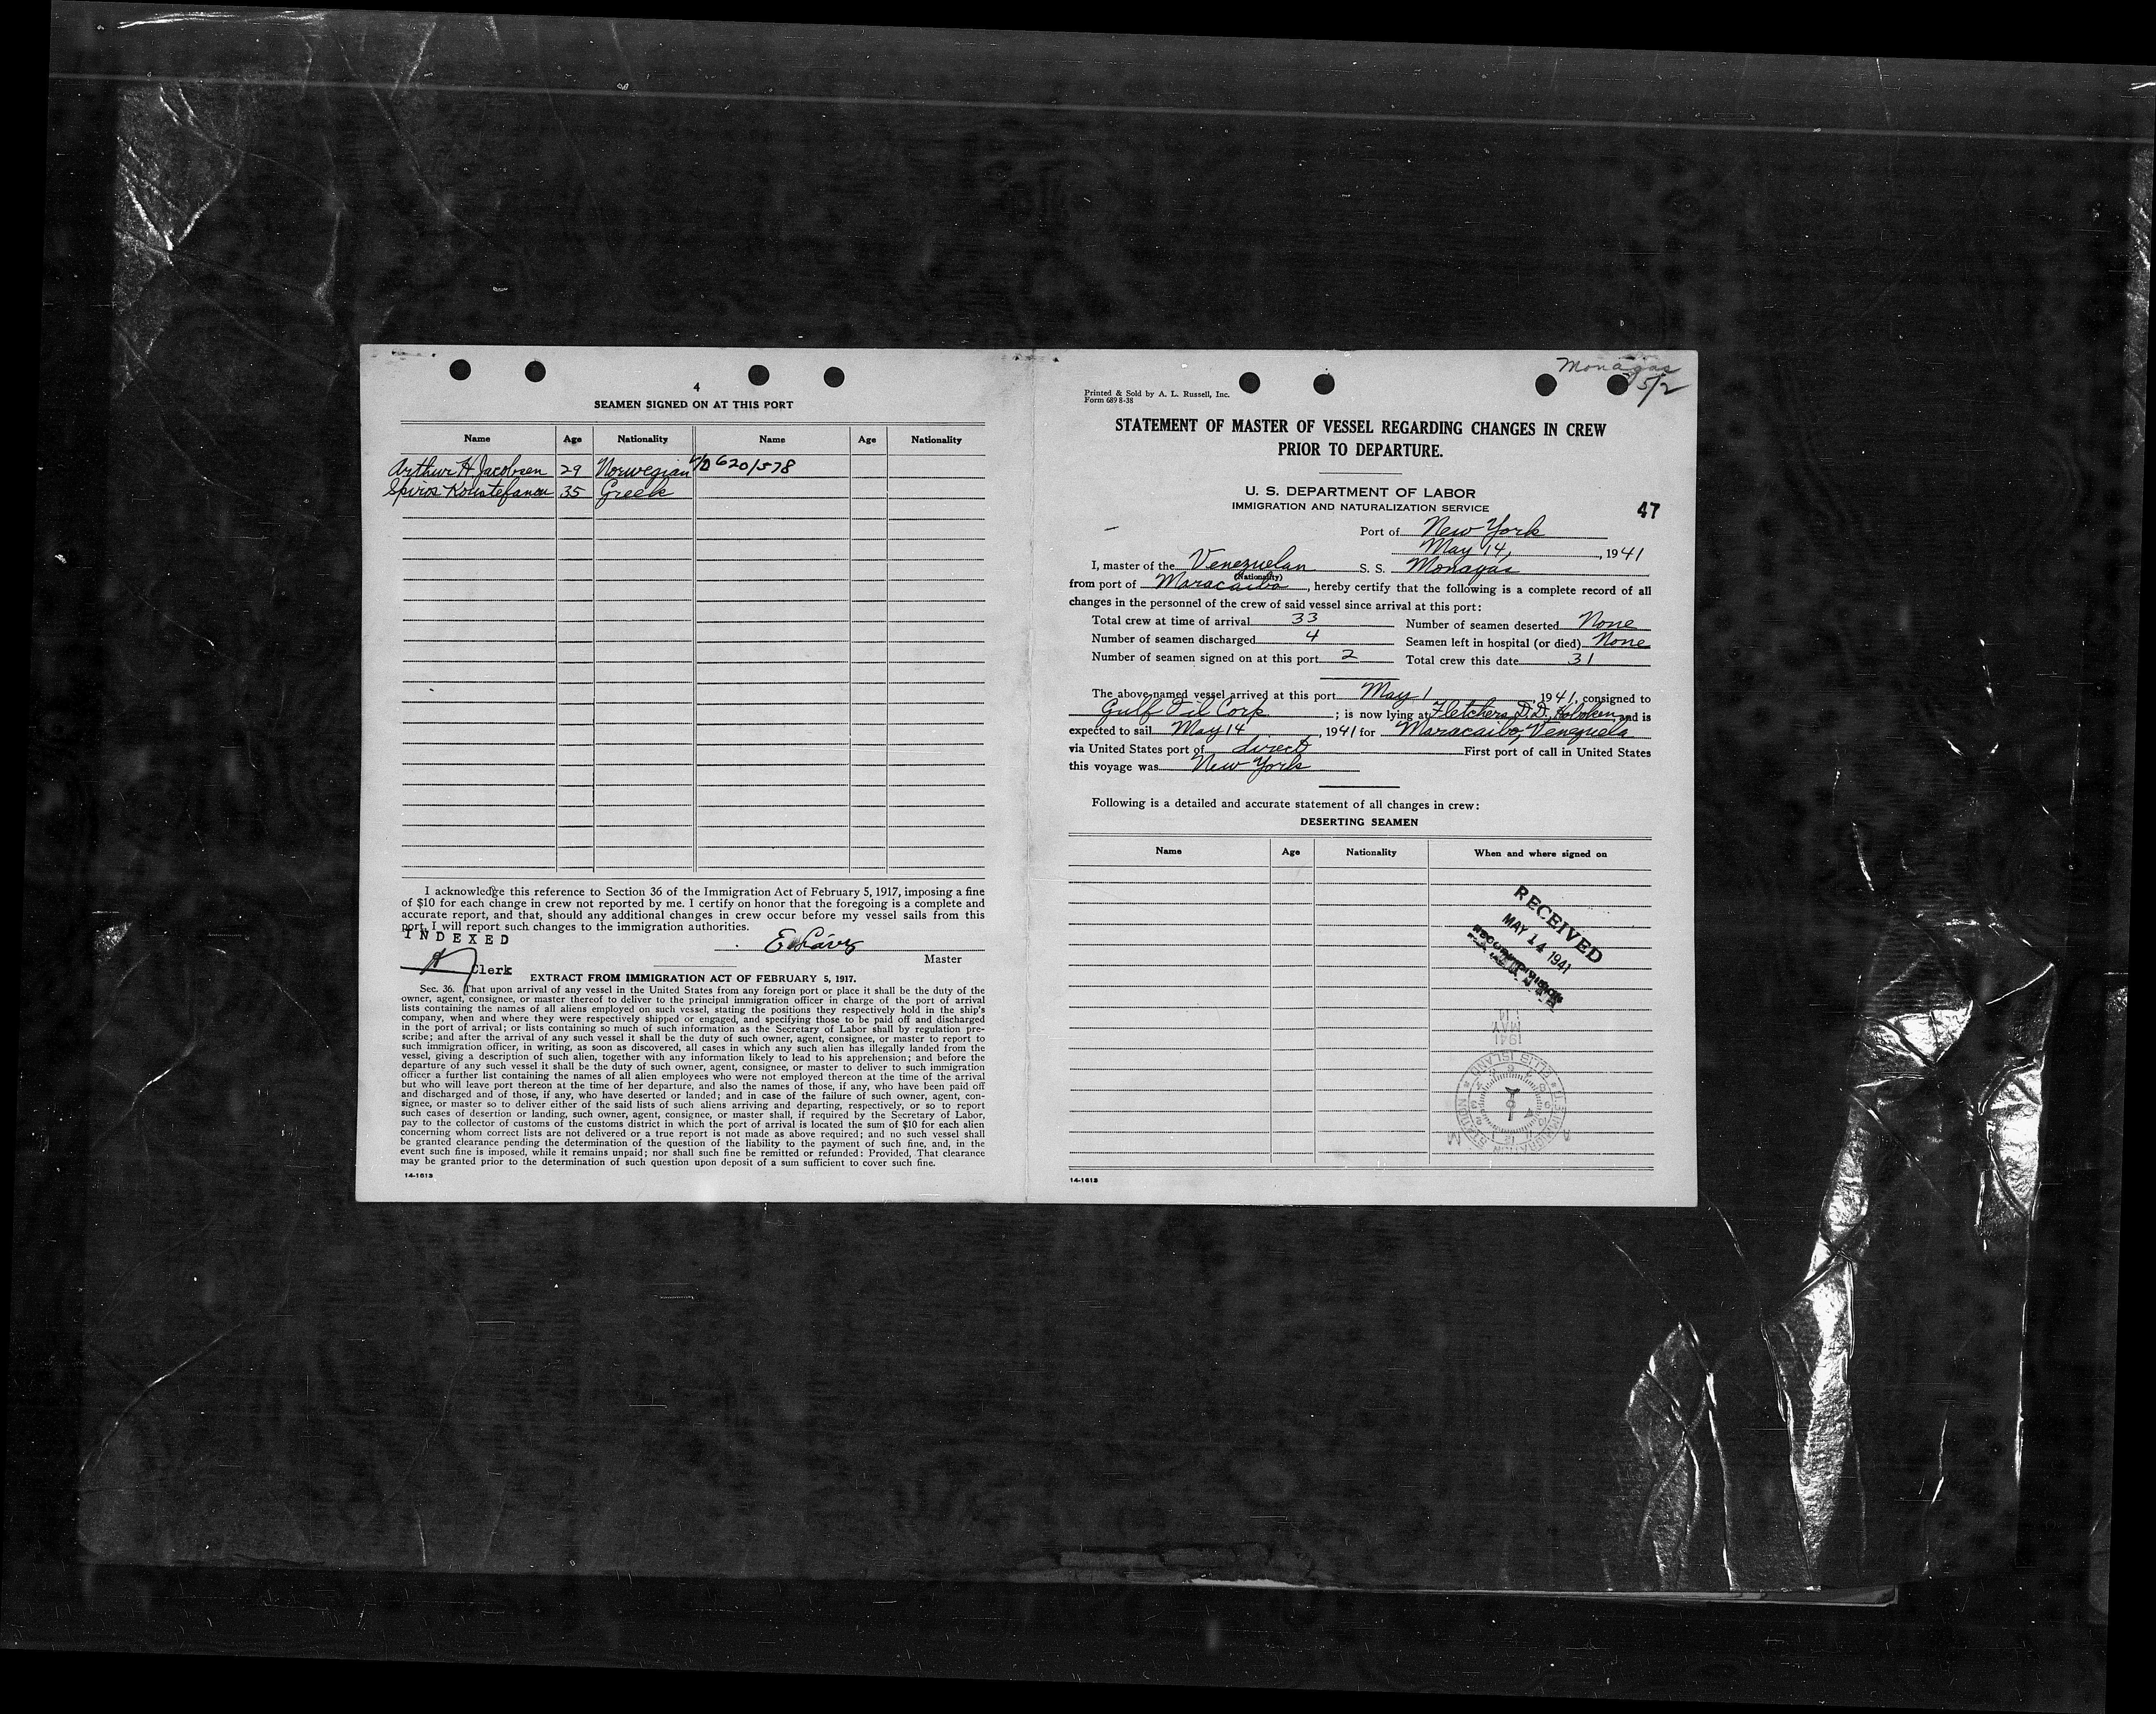 4
SEAMEN SIGNED ON AT THIS PORT
Name Age Nationality Name Age Nationality
Arthur H. Jacobsen 29 Norwegian 620/578
Spiros Koustefanou 35 Greek
I acknowledge this reference to Section 36 of the Immigration Act of February 5, 1917, imposing a fine
of $10 for each change in crew not reported by me. I certify on honor that the foregoing is a complete and
accurate report, and that, should any additional changes in crew occur before my vessel sails from this
port, I will report such changes to the immigration authorities.
INDEXED
Master
Clerk
EXTRACT FROM IMMIGRATION ACT OF FEBRUARY 5, 1917.
Sec. 36. That upon arrival of any vessel in the United States from any foreign port or place it shall be the duty of the
owner, agent, consignee, or master thereof to deliver to the principal immigration officer in charge of the port of arrival
lists containing the names of all aliens employed on such vessel, stating the positions they respectively hold in the ship's
company, when and where they were respectively shipped or engaged, and specifying those to be paid off and discharged
in the port of arrival; or lists containing so much of such information as the Secretary of Labor shall by regulation pre-
scribe; and after the arrival of any such vessel it shall be the duty of such owner, agent, consignee, or master to report to
such immigration officer, in writing, as soon as discovered, all cases in which any such alien has illegally landed from the
vessel, giving a description of such alien, together with any information likely to lead to his apprehension; and before the
departure of any such vessel it shall be the duty of such owner, agent, consignee, or master to deliver to such immigration
officer a further list containing the names of all alien employees who were not employed thereon at the time of the arrival
but who will leave port thereon at the time of her departure, and also the names of those, if any, who have been paid off
and discharged and of those, if any, who have deserted or landed; and in case of the failure of such owner, agent, con-
signee, or master so to deliver either of the said lists of such aliens arriving and departing, respectively, or so to report
such cases of desertion or landing, such owner, agent, consignee, or master shall, if required by the Secretary of Labor,
pay to the collector of customs of the customs district in which the port of arrival is located the sum of $10 for each alien
concerning whom correct lists are not delivered or a true report is not made as above required; and no such vessel shall
be granted clearance pending the determination of the question of the liability to the payment of such fine, and, in the
event such fine is imposed, while it remains unpaid; nor shall such fine be remitted or refunded: Provided, That clearance
may be granted prior to the determination of such question upon deposit of a sum sufficient to cover such fine.
14-1613
Monagas
5/2
Printed & Sold by A. L. Russell, Inc.
Form 689 8-38
STATEMENT OF MASTER OF VESSEL REGARDING CHANGES IN CREW
PRIOR TO DEPARTURE.
U. S. DEPARTMENT OF LABOR
IMMIGRATION AND NATURALIZATION SERVICE
47
Port of New York
May 14, , 1941
I, master of the Venezuelan S. S. Monagas
(Nationality)
from port of Maracaibo , hereby certify that the following is a complete record of all
changes in the personnel of the crew of said vessel since arrival at this port:
Total crew at time of arrival 33 Number of seamen deserted None
Number of seamen discharged 4 Seamen left in hospital (or died) None
Number of seamen signed on at this port 2 Total crew this date 31
The above-named vessel arrived at this port May 1 1941, consigned to
Gulf Oil Corp ; is now lying at Fletchers D.D., Hoboken and is
expected to sail May 14 , 1941 for Maracaibo, Venezuela
via United States port of direct First port of call in United States
this voyage was New York
Following is a detailed and accurate statement of all changes in crew:
DESERTING SEAMEN
Name Age Nationality When and where signed on
RECEIVED
MAY 14 1941
MAY 14
1941
U.S. IMMIGRATION STATION
ELLIS ISLAND
14-1613